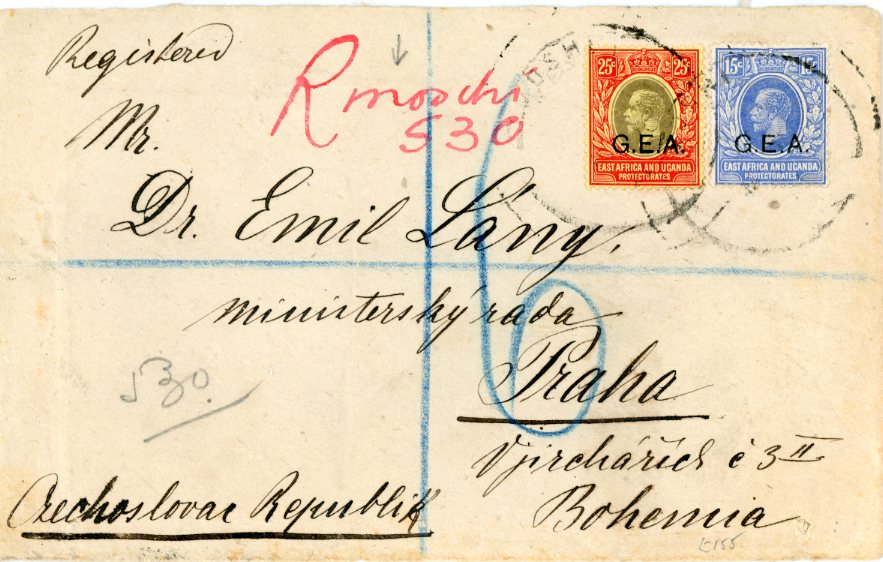 Registered
R Moschi
530
25c 25c
G.E.A.
EAST AFRICA AND UGANDA
PROTECTORATES
15c 15c
G.E.A.
EAST AFRICA AND UGANDA
PROTECTORATES
Mr.
Dr. Emil Lány,
ministerský rada
Praha
V jirchářích č 3 II
Bohemia
530.
Czechoslovac Republik
6